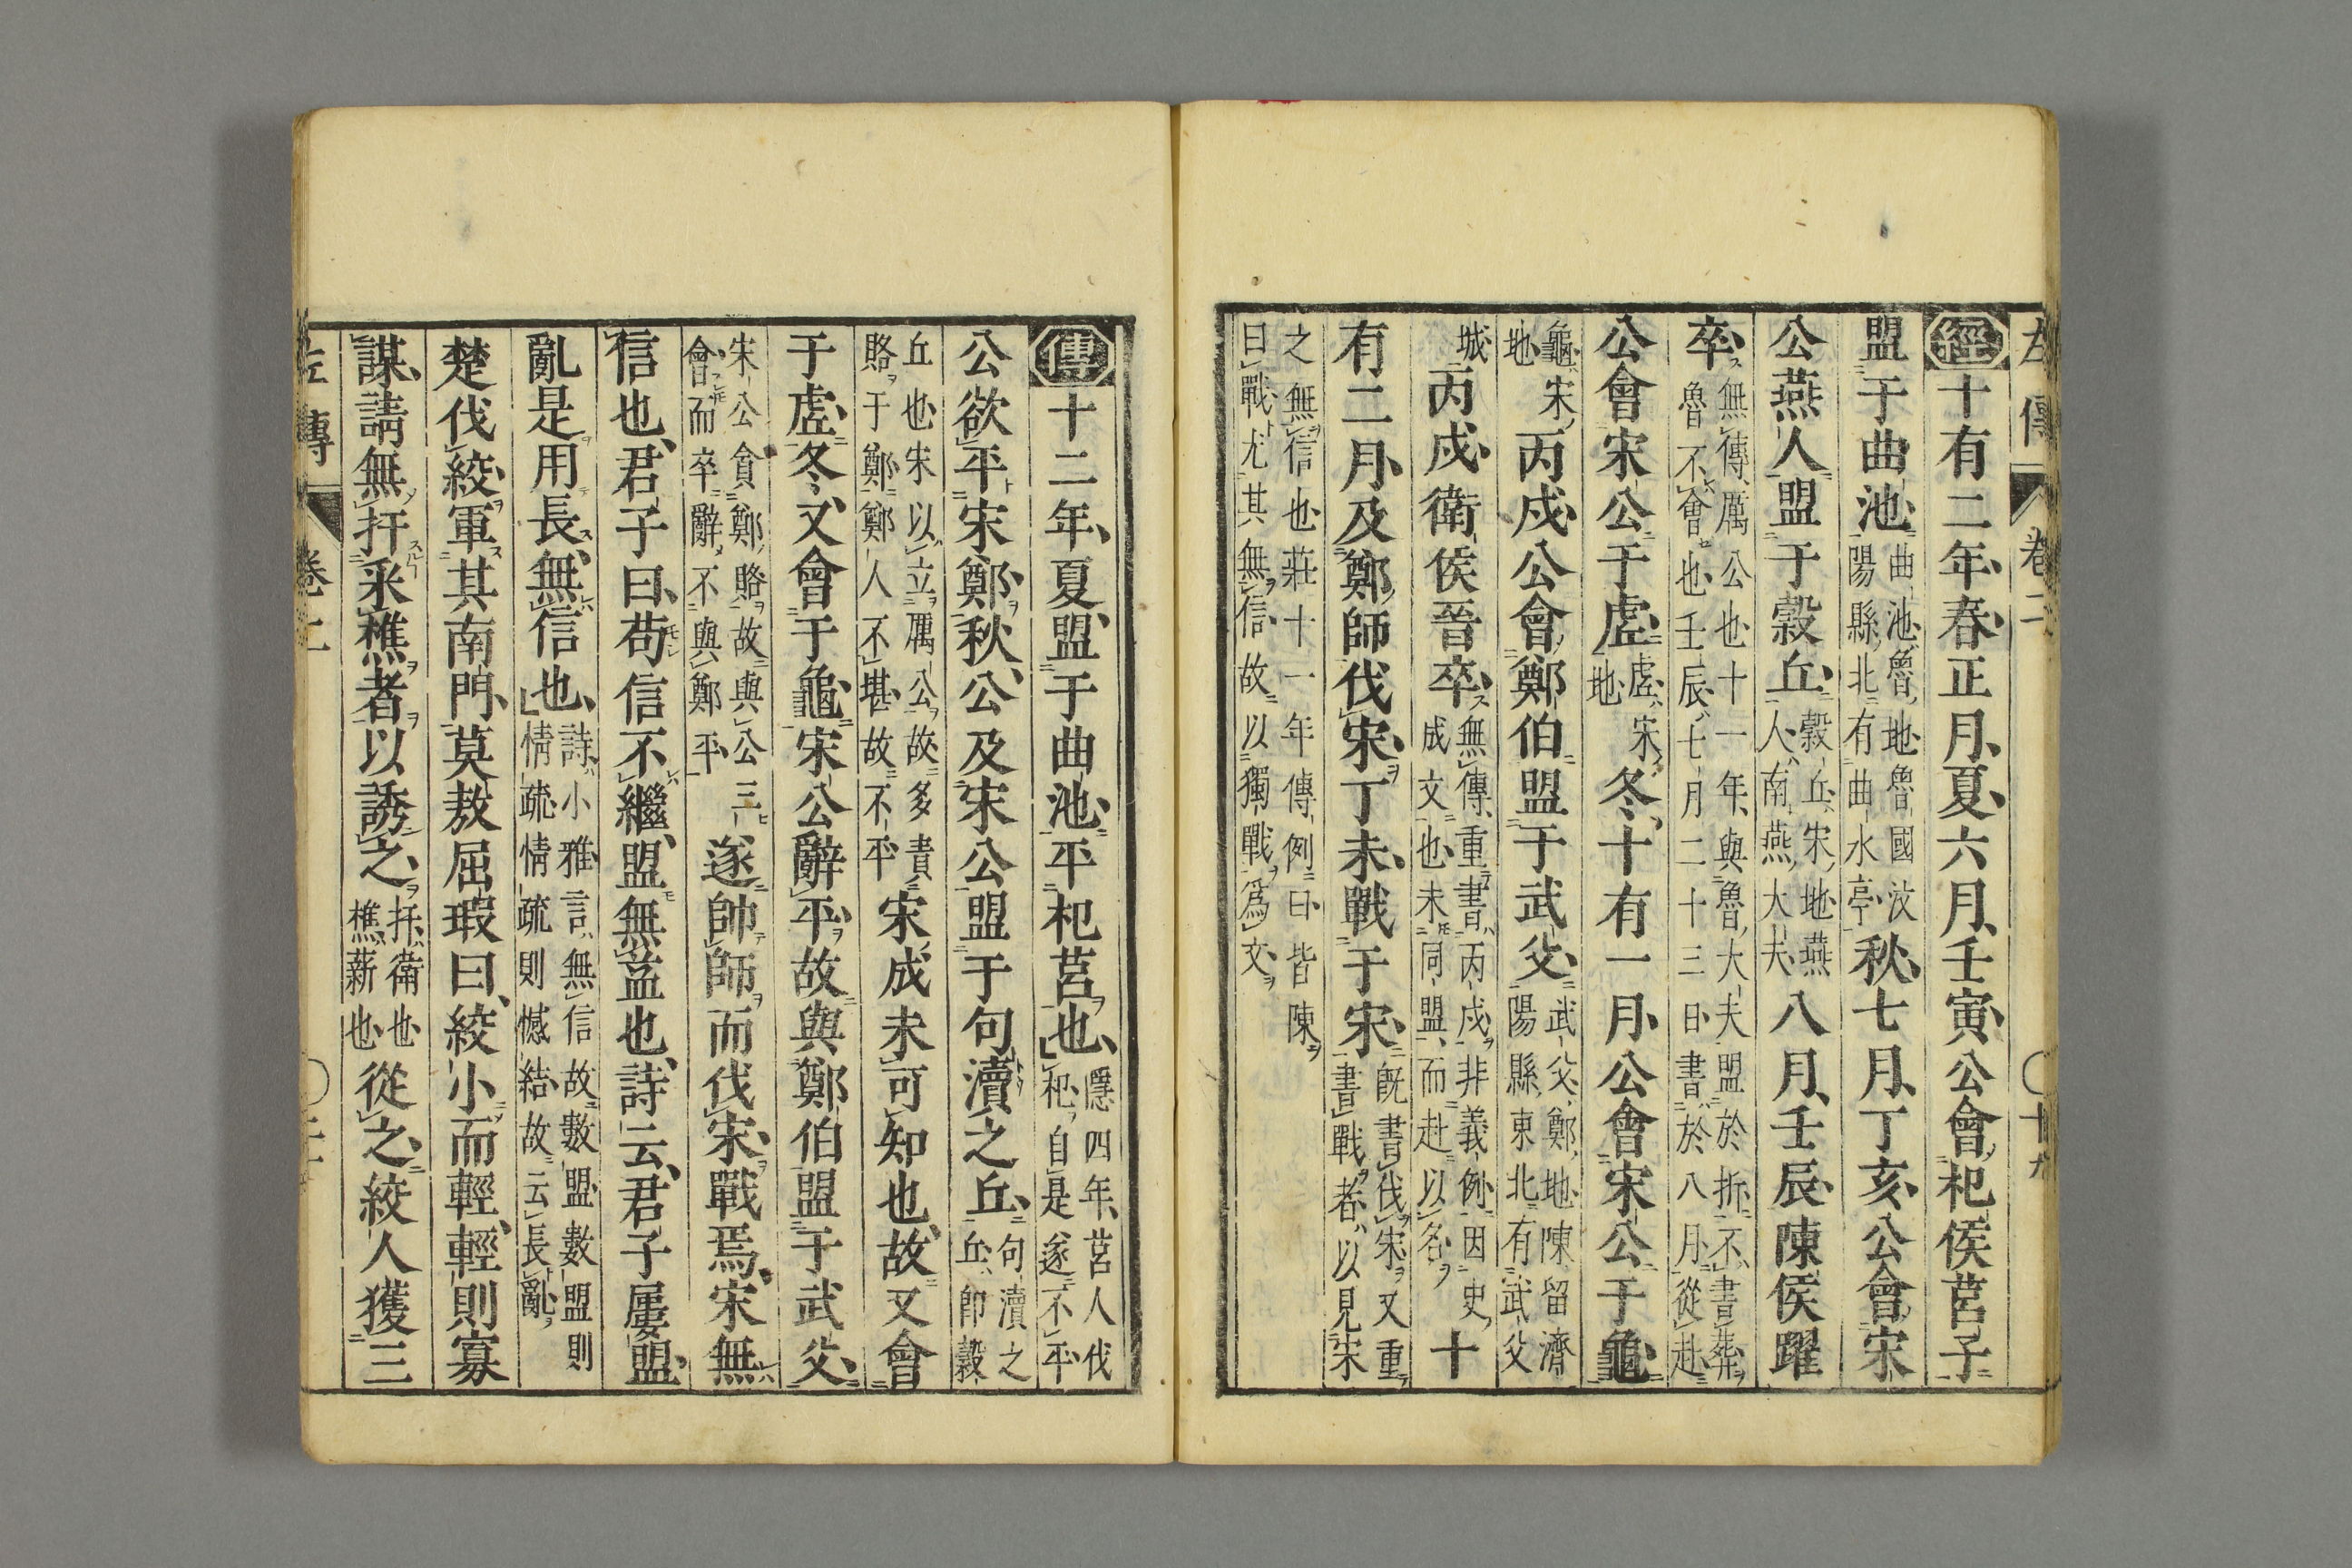 左傳 卷二 十九
經十有二年春正月夏六月壬寅公會杞侯莒子
盟于曲池曲池魯地魯國汶陽縣北有曲水亭秋七月丁亥公會宋
公燕人盟于穀丘穀丘宋地燕人南燕大夫八月壬辰陳侯躍
卒無傳厲公也十一年與魯大夫盟於折不書葬魯不會也壬辰七月二十三日書於八月從赴
公會宋公于虛虛宋地冬十有一月公會宋公于龜
龜宋地丙戌公會鄭伯盟于武父武父鄭地陳留濟陽縣東北有武父
城丙戌衛侯晉卒無傳重書丙戌非義例因史成文也未同盟而赴以名十
有二月及鄭師伐宋丁未戰于宋既書伐宋又重書戰者以見宋
之無信也莊十一年傳例曰皆陳曰戰尤其無信故以獨戰爲文
傳十二年夏盟于曲池平杞莒也隱四年莒人伐杞自是遂不平
公欲平宋鄭秋公及宋公盟于句瀆之丘句瀆之丘即穀
丘也宋以立厲公故多責賂于鄭鄭人不堪故不平宋成未可知也故又會
于虛冬又會于龜宋公辭平故與鄭伯盟于武父
宋公貪鄭賂故與公三會而卒辭不與鄭平遂帥師而伐宋戰焉宋無
信也君子曰苟信不繼盟無益也詩云君子屢盟
亂是用長無信也詩小雅言無信故數盟數盟則情疏情疏則憾結故云長亂
楚伐絞軍其南門莫敖屈瑕曰絞小而輕輕則寡
謀請無扞采樵者以誘之扞衛也樵薪也從之絞人獲三
左傳 卷二